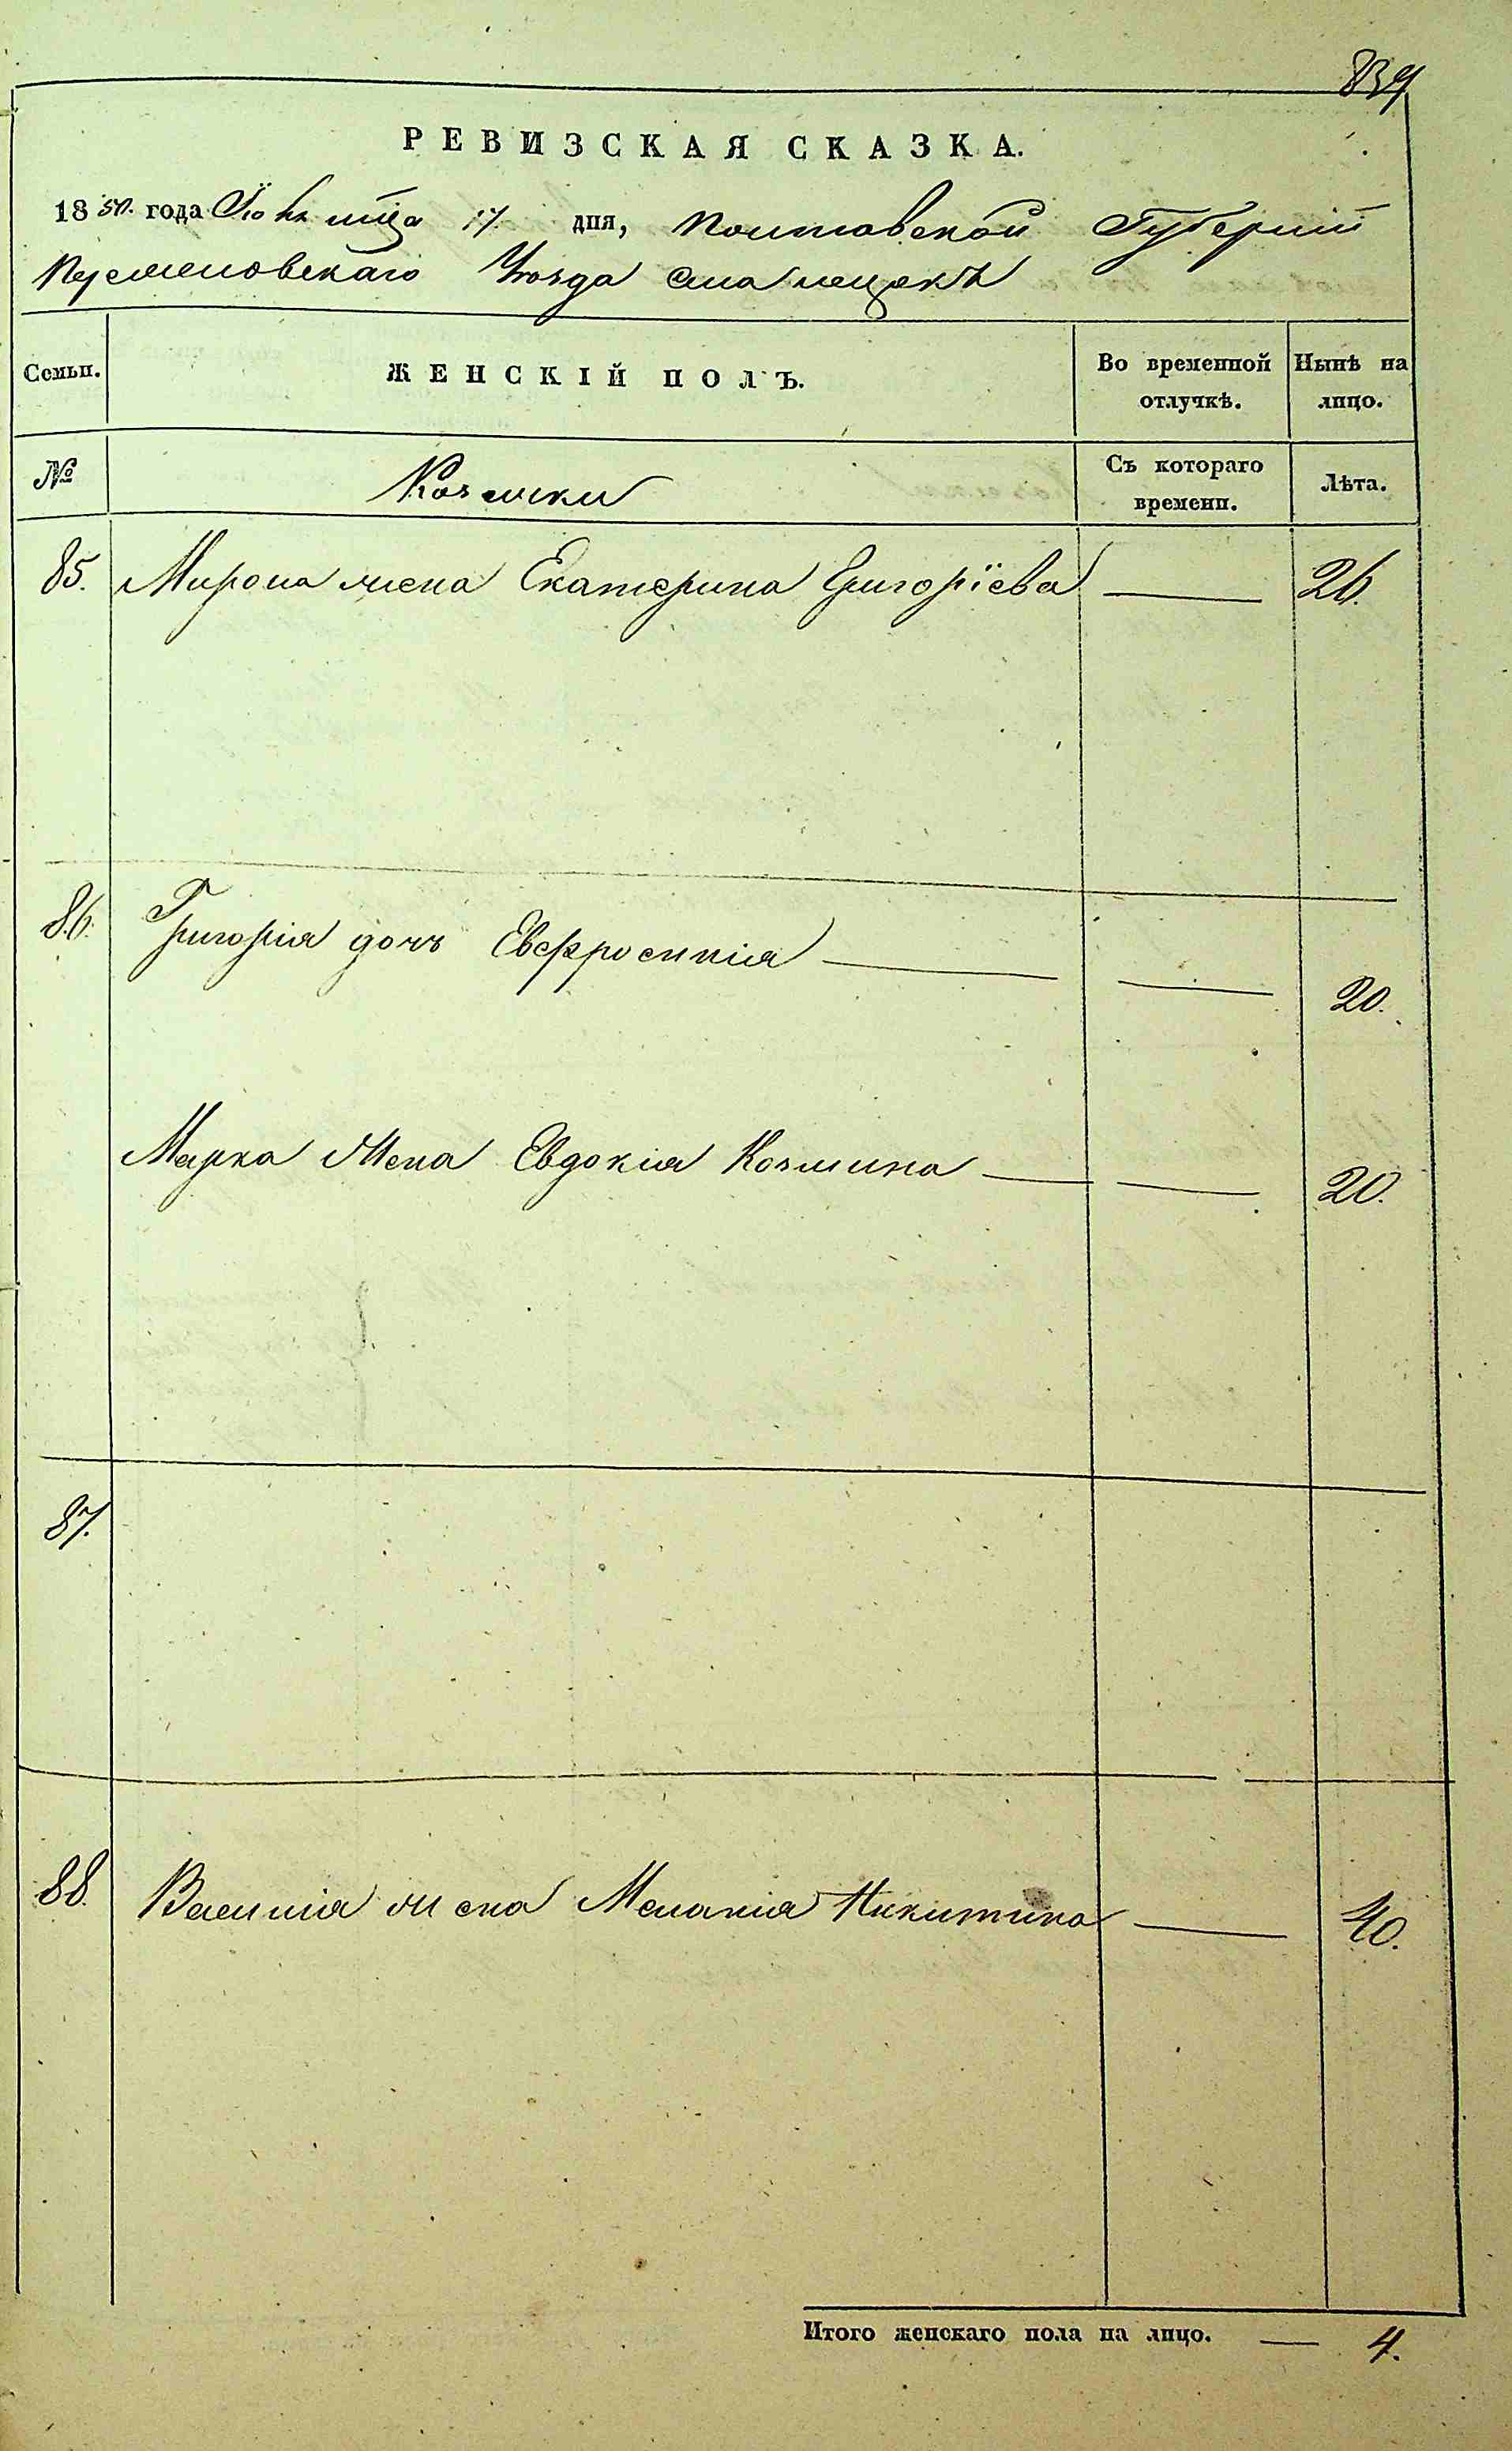 839
РЕВИЗСКАЯ СКАЗКА.
1850. года Іюня мца 17. дня, Полтавской Губерніи
Кременчовскаго Уѣзда
Семьи. ЖЕНСКІЙ ПОЛЪ. Во временной отлучкѣ. Нынѣ на лицо.
№ Козачки Съ котораго времени. Лѣта.
85. Мирона жена Екатерина Григоріева — 26.
86. Григорія дочь Евфросинія — — 20.
Марка жена Евдокія Козмина — — 20.
87.
88. Василія жена Меланія Никитина — 40.
Итого женскаго пола на лицо. — 4.